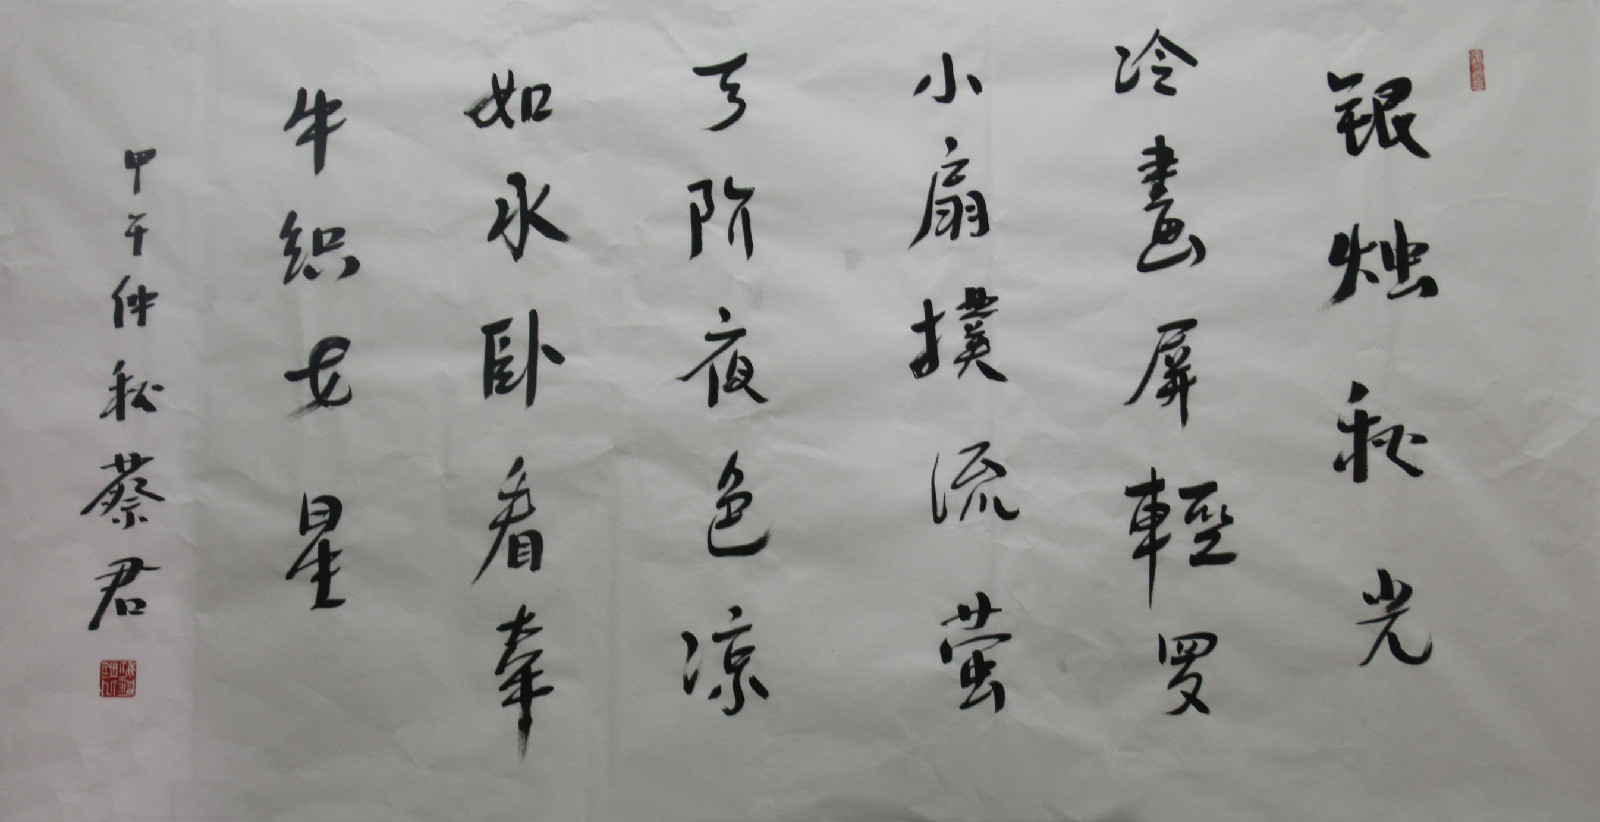 银烛秋光
冷畫屏輕罗
小扇撲流萤
天阶夜色凉
如水卧看牵
牛织女星
甲午仲秋蔡君